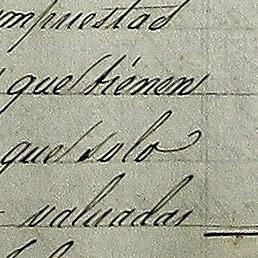 mpuestas
que tienen
que solo
valuadas